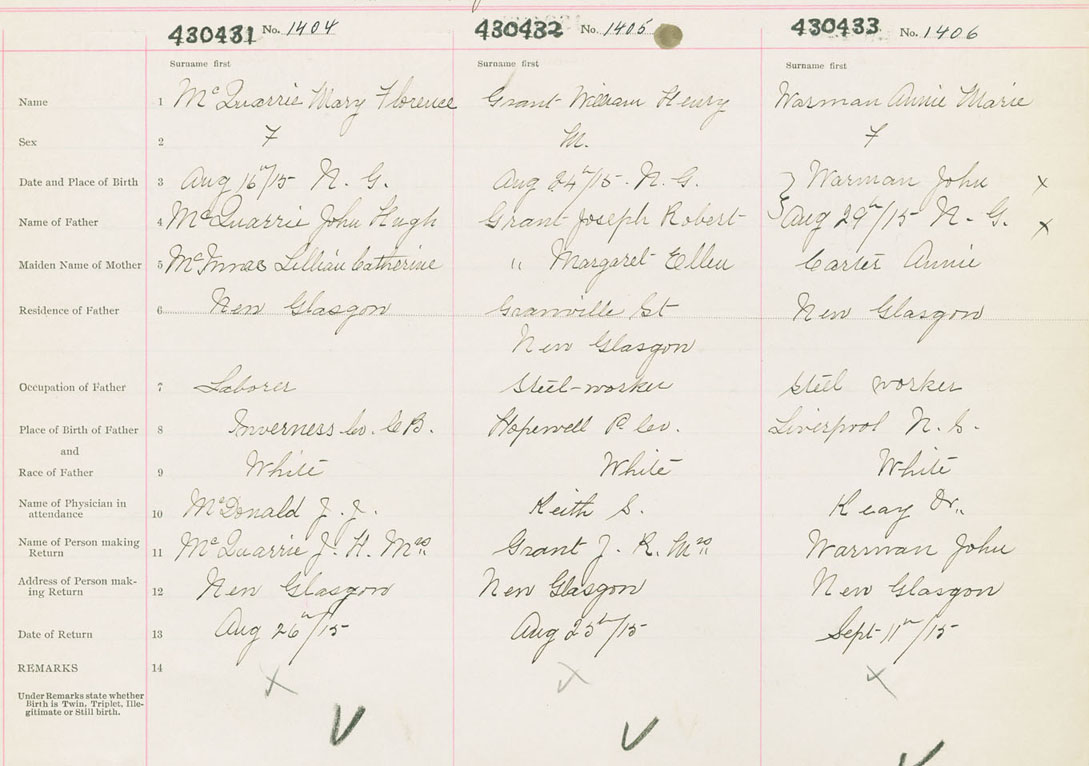 430431 No. 1404 430432 No. 1405 430433 No. 1406
Surname first Surname first Surname first
Name 1 McQuarrie Mary Florence Grant William Henry Warman Annie Marie
Sex 2 F M. F
Date and Place of Birth 3 Aug 16th/15 N. G. Aug 24th/15. N. G. } Warman John x
Name of Father 4 McQuarrie John Hugh Grant Joseph Robert } Aug 29th/15 N. G. x
Maiden Name of Mother 5 McInnes Lillian Catherine " Margaret Ellen Carter Annie
Residence of Father 6 New Glasgow Granville St New Glasgow
New Glasgow
Occupation of Father 7 Laborer Steel-worker Steel worker
Place of Birth of Father 8 Inverness Co. C.B. Hopewell P. Co. Liverpool N. S.
and
Race of Father 9 White White White
Name of Physician in
attendance 10 McDonald J. J. Keith S. Keay Dr.
Name of Person making
Return 11 McQuarrie J. H. Mrs Grant J. R. Mrs Warman John
Address of Person mak-
ing Return 12 New Glasgow New Glasgow New Glasgow
Date of Return 13 Aug 26th/15 Aug 25th/15 Sept 11th/15
REMARKS 14 x x x
Under Remarks state whether
Birth is Twin, Triplet, Ille-
gitimate or Still birth.